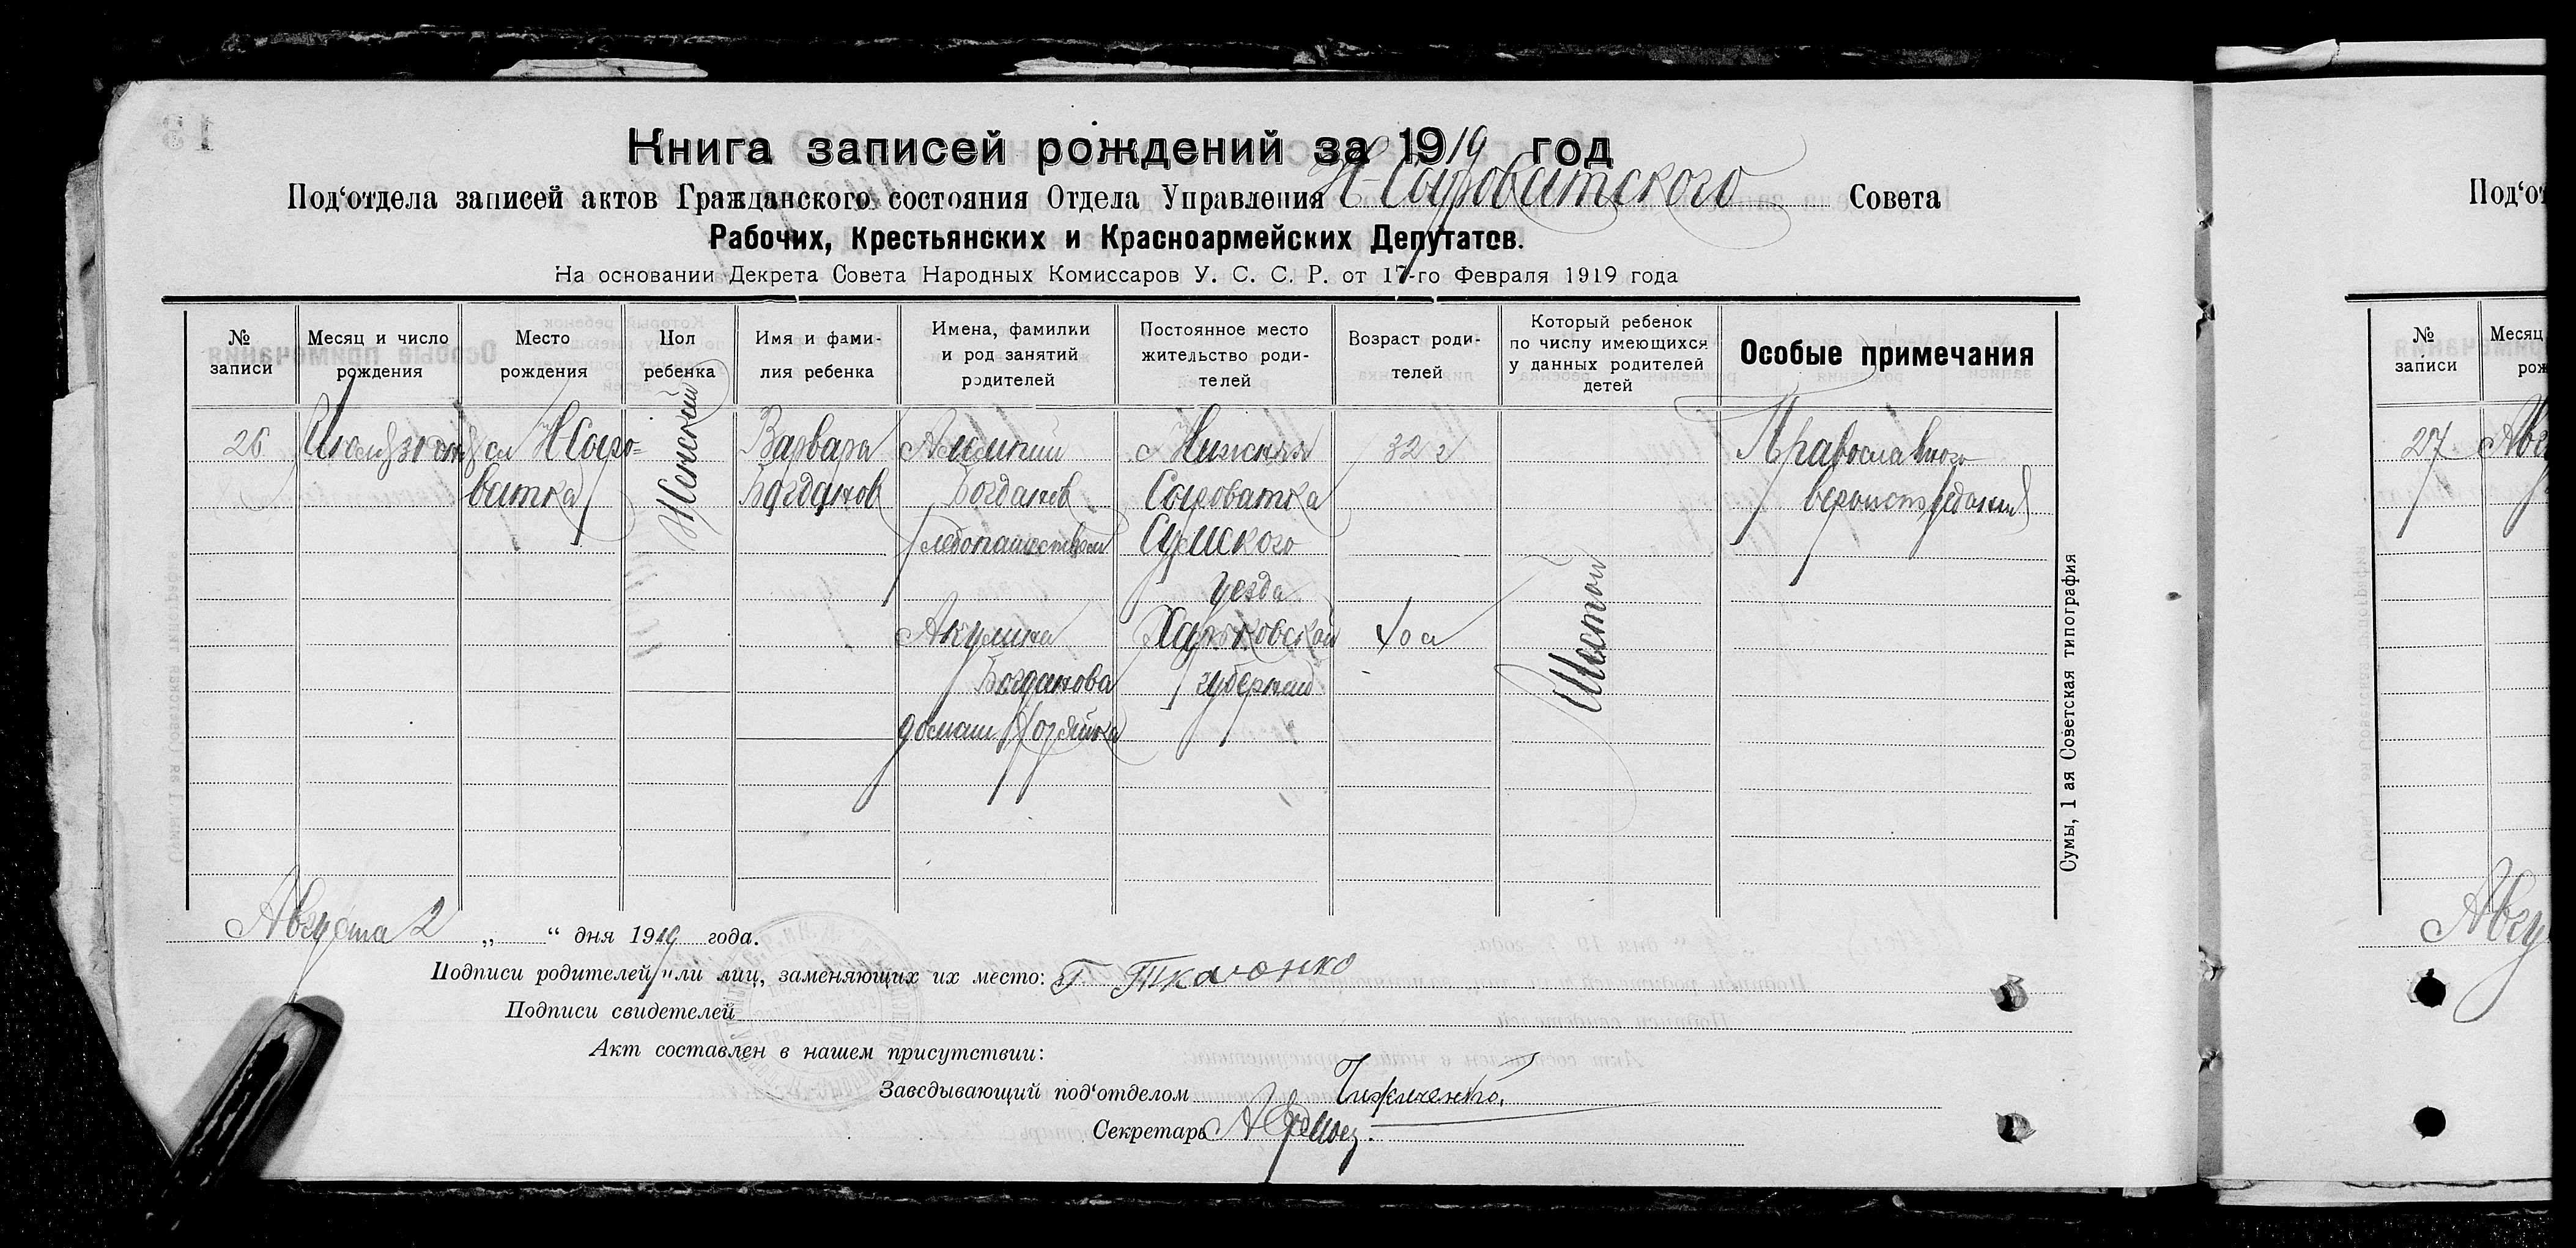 Книга записей рождений за 1919 год
Под‘отдела записей актов Гражданского состояния Отдела Управления Н-Сыроватского Совета
Рабочих, Крестьянских и Красноармейских Депутатов.
На основании Декрета Совета Народных Комиссаров У. С. С. Р. от 17-го Февраля 1919 года
№ записи
Месяц и число рождения
Место рождения
Пол ребенка
Имя и фами-
лия ребенка
Имена, фамилии
и род занятий
родителей
Постоянное место
жительство роди-
телей
Возраст роди-
телей
Который ребенок
по числу имеющихся
у данных родителей
детей
Особые примечания
26
Июля 31 дня
сл Н Сыро-
ватка
Женский
Варвара
Богданов
Богданов
Хлебопашеством
Акулина
Богданова
домаш Хозяйка
Нижняя
Сыроватка
Сумского
уезда
Харьковской
губернии
32 г
40 л
Шестой
Православного
вероисповедания
Августа 2 „ “ дня 1919 года.
Подписи родителей или лиц, заменяющих их место: Г Ткаченко
Подписи свидетелей
Акт составлен в нашем присутствии:
Заведывающий под‘отделом
Секретарь
Сумы, 1 ая Советская типография
Под‘от
№ записи
Месяц
рож
27
Авг
Авгу